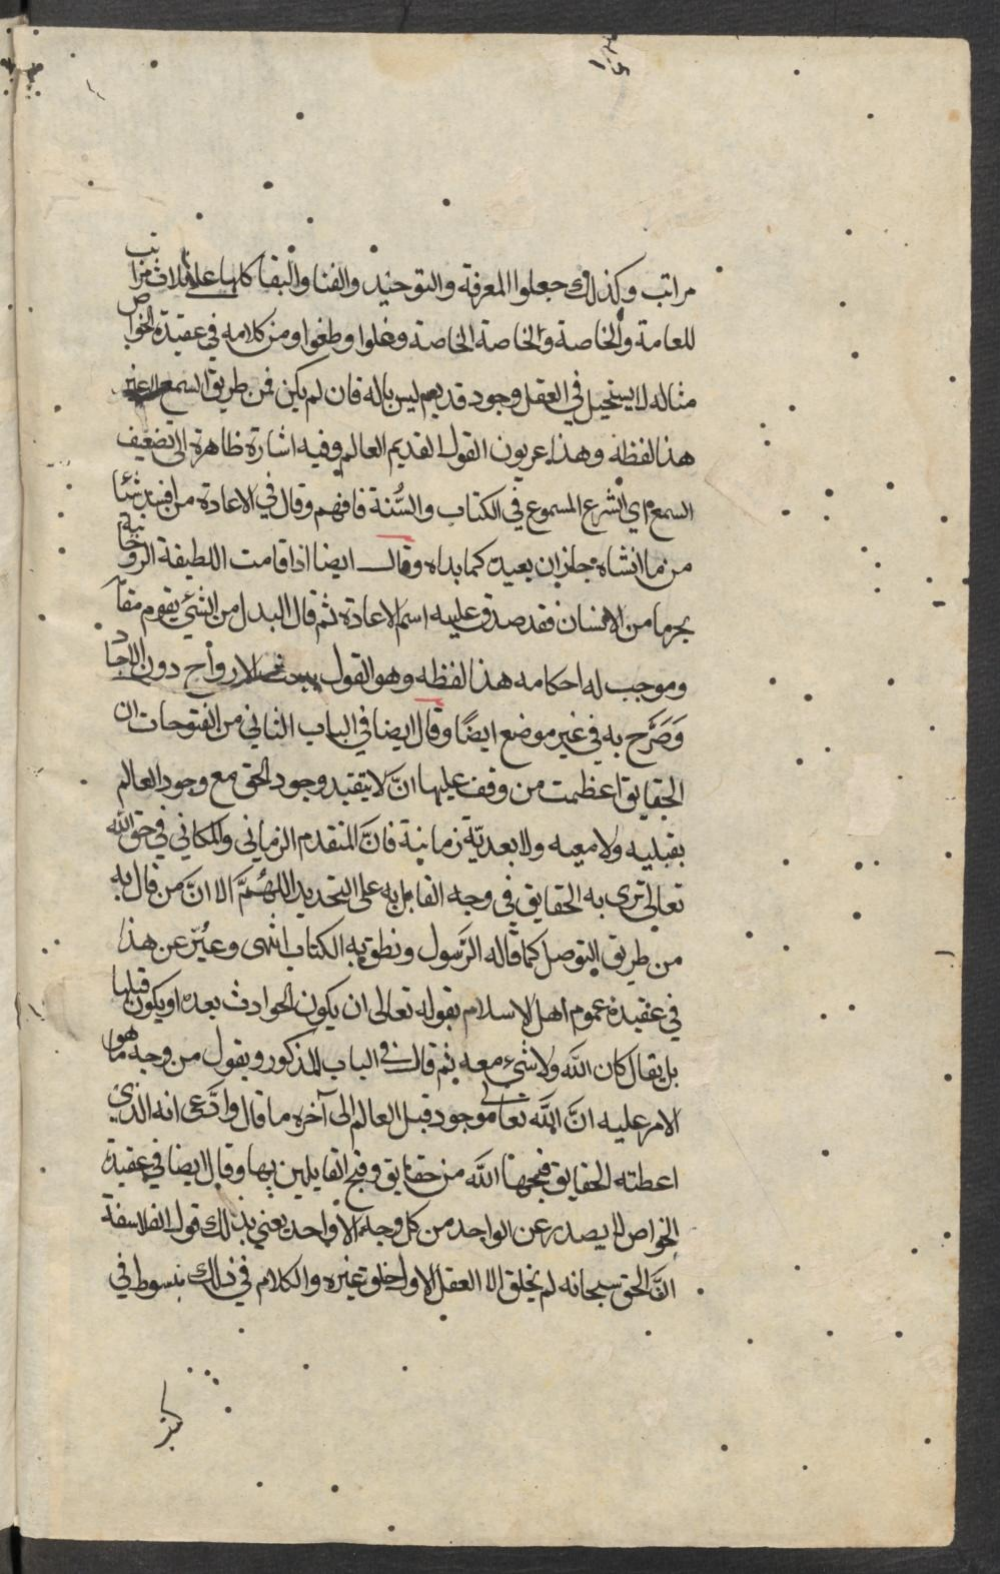 مراتب وكذلك جعلوا المعرفة والتوحيد والفنا والبقا كلها على ثلاث مراتب
للعامة والخاصة والخاصة الخاصة وغلوا وطغوا ومن كلامه في عقيدة الخواص
مثاله لا يستحيل في العقل وجود قديم ليس باله فان لم يكن فمن طريق السمع لا غير
هذا لفظه وهذا عربون القول القديم العالم وفيه اشارة ظاهرة الى تضعيف
السمع اي الشرع المسموع في الكتاب والسُّنة فافهم وقال في الاعادة من افسد شئا
من ما انشاه جاز ان يعيده كما بداه وقال ايضا اذا قامت اللطيفة الروحانية
بجزما من الانسان فقد صدق عليه اسم الاعادة ثم قال البدل من الشيء يقوم مقامه
وموجب له احكامه هذا لفظه وهو القول ببعث الارواح دون الاجساد
وَصَرَّح به في غير موضع ايضًا وقال ايضا في الباب الثاني من الفتوحات ان
الحقايق اعطت من وقف عليها انَّ لا يتقيد وجود الحق مع وجود العالم
بقبليه ولا معيه ولا بعديّة زمانية فانَّ المتقدم الزماني والمكاني في حق الله
تعالى ترى به الحقايق في وجه القايل به على التحديد اللهُمَّ الا انَّ من قال به
من طريق التوصل كما قاله الرَسول ونطق به الكتاب انتهى وعبّر عن هذا
في عقيدة عموم اهل الاسلام بقوله تعالى ان يكون الحوادث بعده او يكون قبلها
بل يقال كان الله ولا شيء معه ثم قال في الباب المذكور ويقول من وجه ما هو
الامر عليه انَّ الله تعالى موجود قبل العالم الى آخره ما قال وادَّعى انه الذي
اعطته الحقايق فيجهنا الله من حقايق وقبح القايلين بها وقال ايضا في عقيدة
الخواص لا يصدر عن الواحد من كل وجه الا واحد يعني بذلك قول الفلاسفة
انَّ الحق سبحانه لم يخلق الا العقل الاول خلق غيره والكلام في ذلك مبسوط في